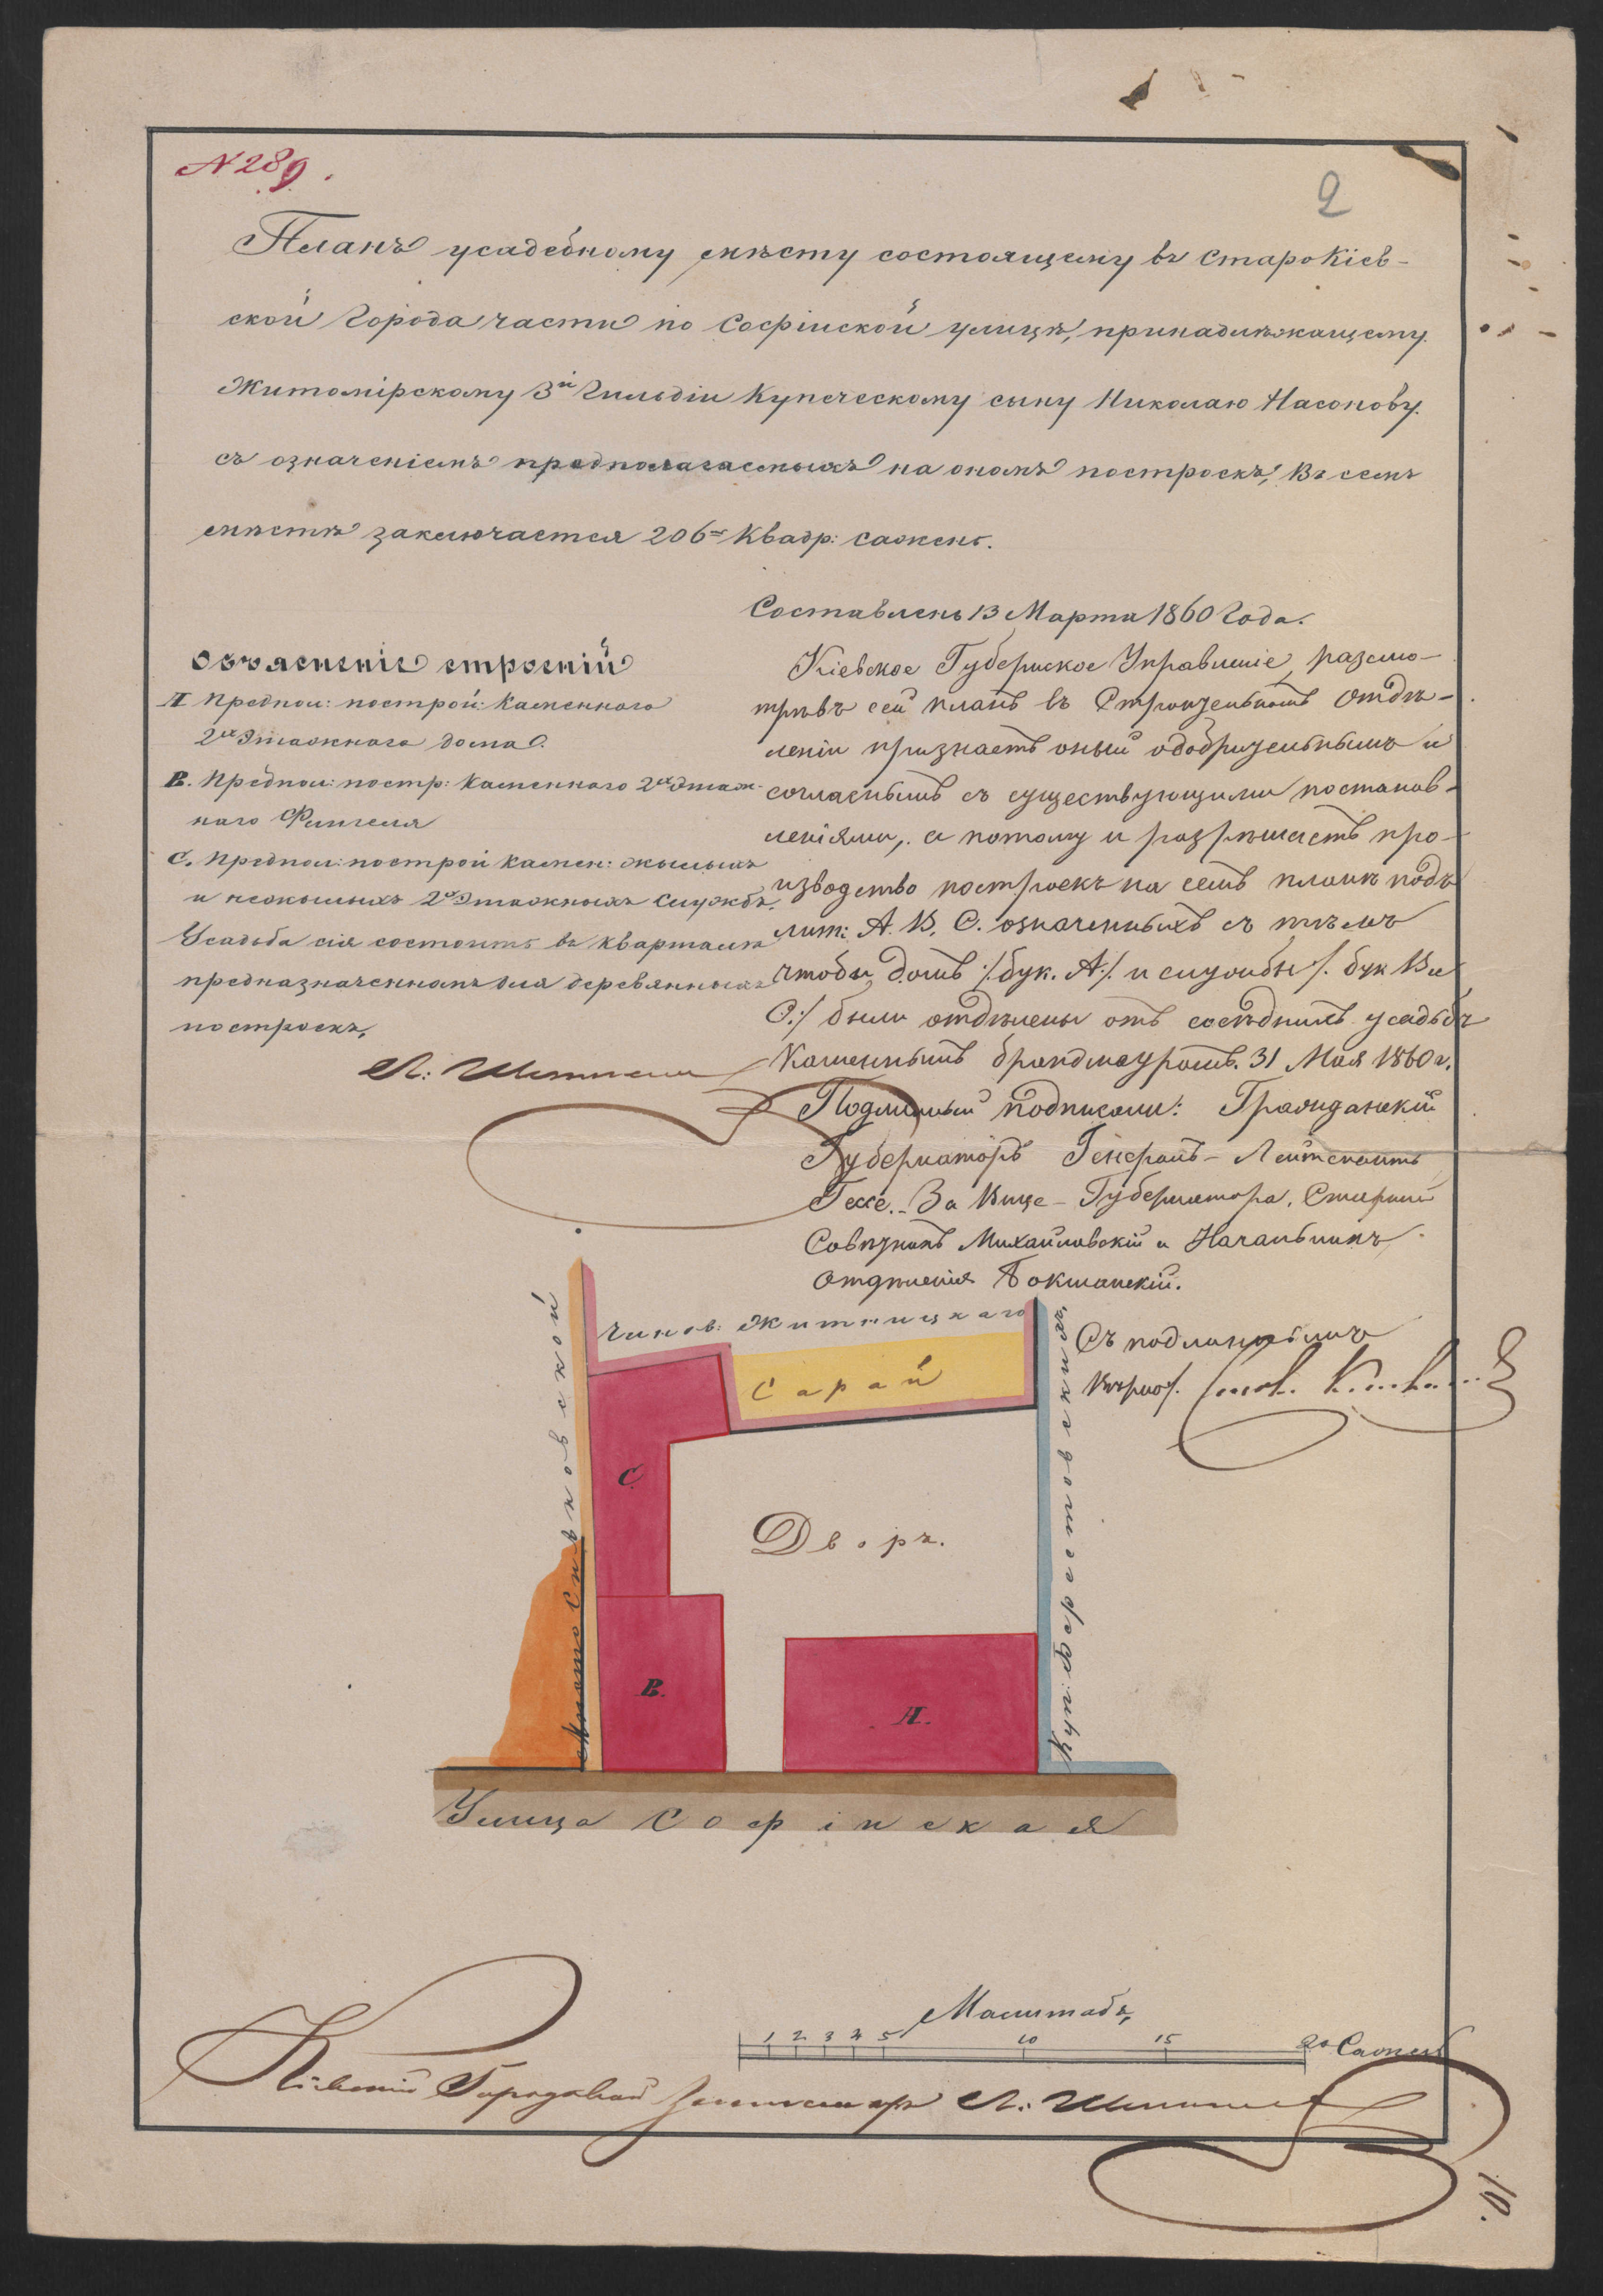 N 289.
2
Планъ усадебному мѣсту состоящему въ Старокіев-
ской города части по Софійской улицѣ, принадлѣжащему
Житомірскому 3й Гильдіи Купеческому сыну Николаю Насонову.
съ означеніемъ предполагаемыхъ на ономъ построекъ, въ семъ
мѣстѣ заключается 206 Квадр: сажень.
Составленъ 13 Марта 1860 Года.
Объясненіе строеній
А Предпол: построй: Каменнаго
2хъ этажнаго дома.
В. Предпол: постр: Каменнаго 2хъ этаж-
наго Флигеля
С. Предпол: построй камен: жылыхъ
и нежылыхъ 2хъ этажныхъ службъ.
Усадьба сія состоитъ въ кварталѣ
предназначенномъ для деревянныхъ
построекъ,
Кіевское Губернское Управленіе, разсмо-
трѣвъ сей планъ въ Строительномъ Отдѣ-
леніи признаетъ оный одобрительнымъ и
согласнымъ съ существующими постанов-
леніями, а потому и разрѣшаетъ про-
изводство построекъ на семъ планѣ подъ
лит: А. В. С. означенныхъ съ тѣмъ
чтобы домъ /:бук. А:/ и службы /: бук В и
С:/ были отдѣлены отъ сосѣднихъ усадьбъ
Каменнымъ брандмауромъ. 31 Мая 1860 г.
Подлинный подписали: Гражданскій
Губернаторъ Генералъ-Лейтенантъ
Гессе. За Вице-Губернатора, Старшій
Совѣтникъ Михайловскій и Начальникъ
Отдѣленія Бокщанскій.
Съ подлиннымъ
вѣрно/.
Чинов. Житницкаго
Сарай
С.
Дворъ.
В.
А.
Мѣсто
Улица Софінская
Масштабъ,
1 2 3 4 5 10 15 20 Сажень
Кіевскій Городовой Землемѣръ
10.